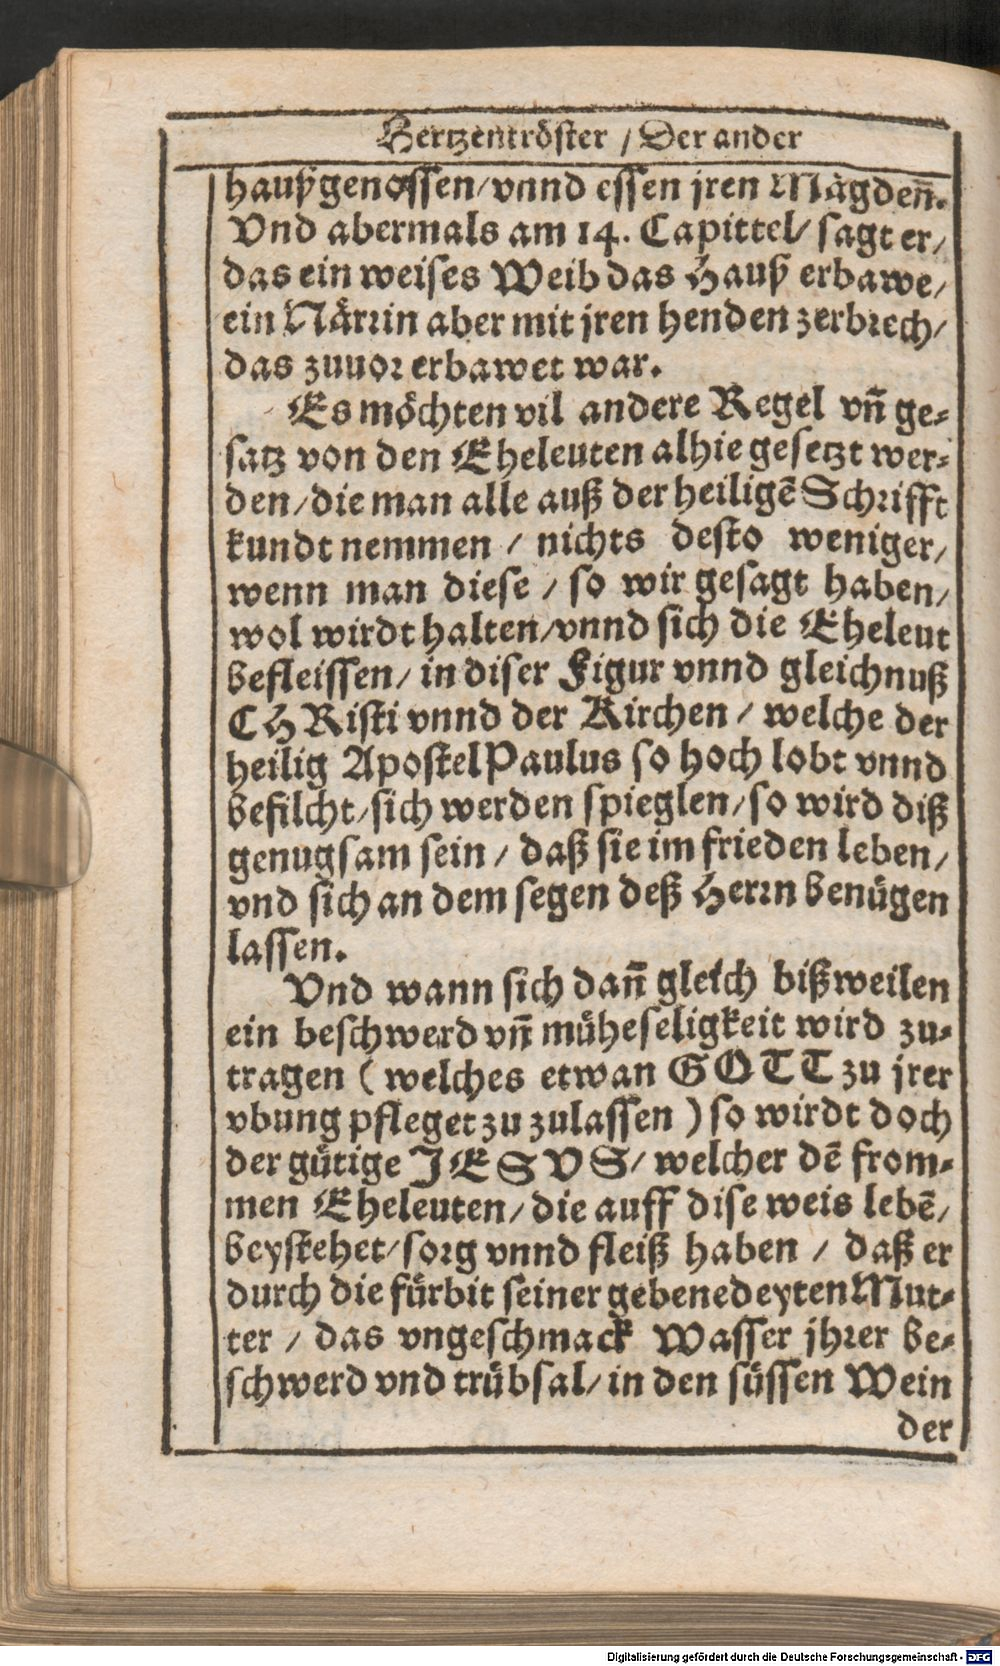 Hertzentröster / Der ander
haußgenossen/vnnd essen jren Mägdeñ.
Vnd abermals am 14. Capittel/ sagt er/
das ein weises Weib das Hauß erbawe/
ein Närrin aber mit jren henden zerbrech/
das zuuor erbawet war.
Es möchten vil andere Regel vñ ge-
satz von den Eheleuten alhie gesetzt wer-
den/die man alle auß der heiligē Schrifft
kundt nemmen / nichts desto weniger/
wenn man diese / so wir gesagt haben/
wol wirdt halten/vnnd sich die Eheleut
befleissen/ in diser Figur vnnd gleichnuß
CHRisti vnnd der Kirchen / welche der
heilig Apostel Paulus so hoch lobt vnnd
befilcht/sich werden spieglen/so wird diß
genugsam sein / daß sie im frieden leben/
vnd sich an dem segen deß Herrn benügen
lassen.
Vnd wann sich dañ gleich bißweilen
ein beschwerd vñ müheseligkeit wird zu-
tragen ( welches etwan GOTT zu jrer
vbung pfleget zu zulassen ) so wirdt doch
der gütige JESVS/ welcher dē from-
men Eheleuten/ die auff dise weis lebē/
beystehet/sorg vnnd fleiß haben / daß er
durch die fürbit seiner gebenedeyten Mut-
ter / das vngeschmack Wasser jhrer be-
schwerd vnd trübsal/ in den süssen Wein
der
Digitalisierung gefördert durch die Deutsche Forschungsgemeinschaft - DFG